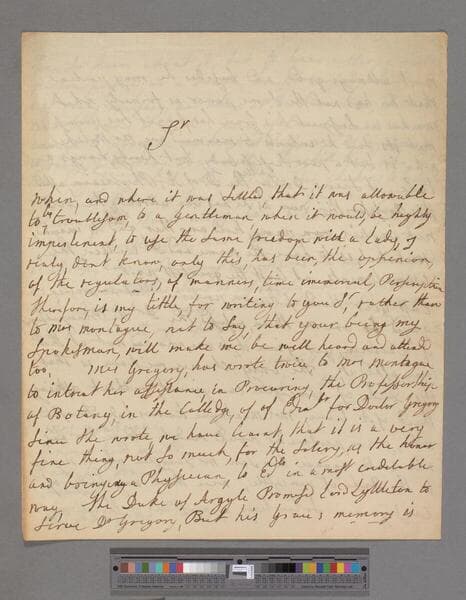 Sr
When, and where it was Setled that it was allowable
to be troublesom, to a gentleman when it would be highly
impertinent, to use the same freedom with a Lady, I
realy dont know, only this, has been, the oppinion,
of the regulators, of manners, time immemorial, Perscription
therefore, is my tittle, for writing to you Sr, rather than
to Mrs montague, not to Say, that your being my
Spoksman, will make me be well heard and attend
too, Mrs Gregory, has wrote twice, to Mrs montague
to intreat her assistance in Procuring, the Professorship
of Botany in the Colledge, of for Doctor Gregory
Since She wrote, we have learnt, that it is a very
fine thing, not So much, for the Salery, as the honor
and bringing a Physician, to Edr in a most creditable
way. The Duke of Argyle Promised Lord Lyttleton to
Serve Dr Gregory, But his Grace's memory is